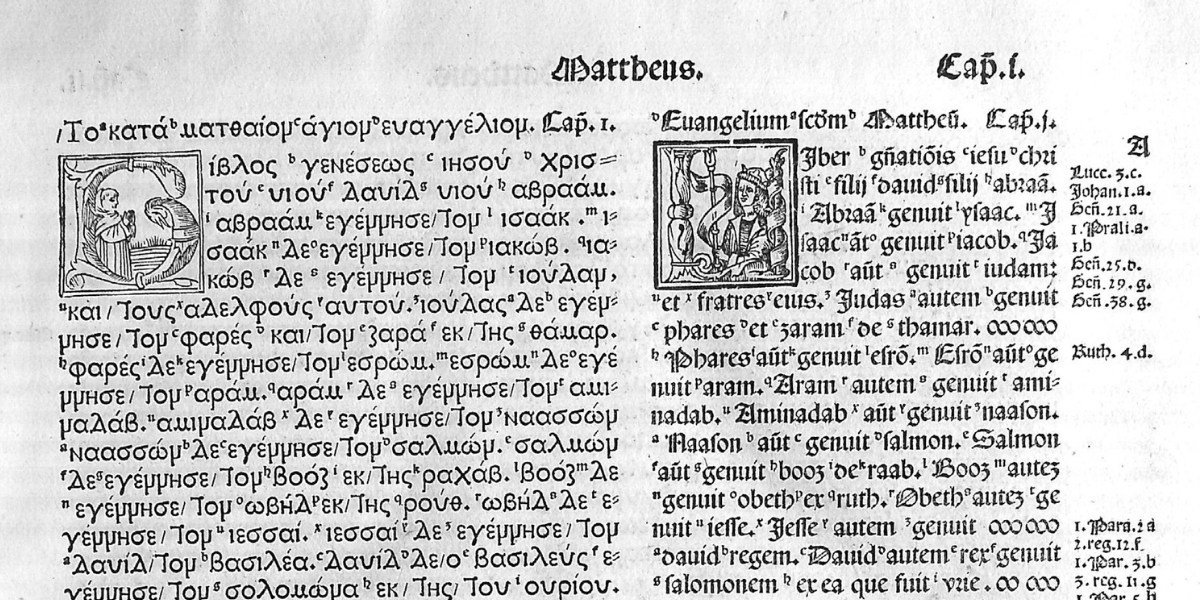 Mattheus. Cap̃.i.
/Τοᵃκατάᵇματθαίομᶜάγιομᵈευαγγέλιομ. Cap̃. 1.
Βίβλος ᵇγενέσεως ᶜιησού ᵈχρισ=
τού ᵉυιούᶠΔαυίδᵍυιούʰαβραάμ.
ⁱαβραάμᵏεγέμμησε/Τομˡισαάκ.ᵐι=
σαάκⁿΔεᵒεγέμμησε/Τομᵖιακώβ.qια=
κώβʳΔεˢεγέμμησε/Τομᵗιούδαμ,
ᵘκαι/Τουςˣαδελφούςʳαυτού.ᶾιούδαςᵃΔεᵇεγέμ=
μησε/Τομᶜφαρέςᵈκαι/Τομᵉζαράᶠεκ/Τηςᵍθάμαρ.
ʰφαρέςⁱΔεᵏεγέμμησε/Τομˡεσρώμ.ᵐεσρώμⁿΔεᵒεγέ
μμησε/Τομᵖαράμ.qαράμʳΔεˢεγέμμησε/Τομᵗαμι=
μαδάβ.ᵘαμιμαδάβˣΔεʳεγέμμησε/Τομᶾναασσώμ
ᵃναασσώμᵇΔεᶜεγέμμησε/Τομᵈσαλμώμ.ᵉσαλμώμ
ᶠΔεᵍεγέμμησε/Τομʰβοόζⁱεκ/Τηςᵏραχάβ.ˡβοόζᵐΔε
ⁿεγέμμησε/Τομᵒωβήδᵖεκ/Τηςqρούθ.ʳωβήδˢΔεᵗε=
γέμμησε/Τομᵘιεσσαί.ˣιεσσαίʳΔεᶾεγέμμησε/Τομ
ᵃΔαυίδ/Τομᵇβασιλέα.ᶜΔαυίδᵈΔε/οᵉβασιλεύςᶠε=
γέμμησε/Τομᵍσολομώμαʰεκ/Της/Τουⁱουρίου.
ᵇEuangeliumᵃscd̃mᵇMattheũ. Cap̃.i.
Liberᵇgñatiõisᶜiesuᵈchri
stiᵉfilijᶠdauidᵍfilijʰabraã.
ⁱAbraãᵏgenuitˡysaac.ᵐI
saacⁿãtᵒgenuitᵖiacob.qJa
cobʳaũtˢgenuitᵗiudam:
ᵘetˣfratresʳeius.ᶾJudasᵃautemᵇgenuit
ᶜpharesᵈetᵉzaramᶠdeᵍthamar.
ʰPharesⁱaũtᵏgenuitˡesrõ.ᵐEsrõⁿaũtᵒge
nuitᵖaram.qAramʳautemˢgenuitᵗami=
nadab.ᵘAminadabˣaũtʳgenuitᶾnaason.
ᵃNaasonᵇaũtᶜgenuitᵈsalmon.ᵉSalmon
ᶠaũtᵍgenuitʰboozⁱdeᵏraab.ˡBoozᵐautez
ⁿgenuitᵒobethᵖexqruth.ʳObethˢautezᵗge
nuitᵘiesse.ˣJesseʳautemᶾgenuit
ᵃdauidᵇregem.ᶜDauidᵈautemᵉrexᶠgenuit
ᵍsalomonemʰex ea que fuitⁱvrie.
A
Lucc. 3.c.
Johan.1.a.
Geñ.21.a.
1.Prali.a.
1.b
Geñ.25.d.
Geñ.29.g.
Geñ.38.g.
Ruth.4.d.
1.Para.2a
2.reg.12.f.
1.Par.3.b
3.reg.11.g
1.Par.5.b